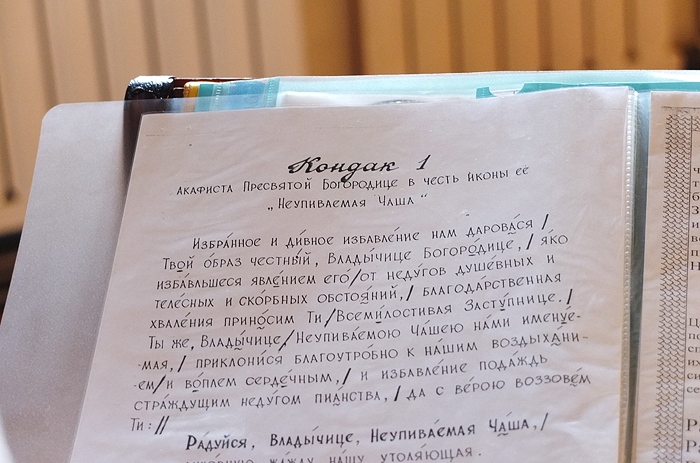 Кондак 1
акафиста Пресвятой Богородице в честь иконы ее
„Неупиваемая Чаша“
Избра́нное и ди́вное избавле́ние нам дарова́ся /
Твой о́браз честны́й, Влады́чице Богоро́дице, / я́ко
изба́вльшеся явле́нием его́ / от неду́гов душе́вных и
теле́сных и ско́рбных обстоя́ний, / благода́рственная
хвале́ния прино́сим Ти / Всеми́лостивая Засту́пнице. /
Ты же, Влады́чице / Неупива́емою Ча́шею на́ми имену́е-
-мая, / приклони́ся благоутро́бно к на́шим воздыха́ни-
-ем / и во́плем серде́чным, / и избавле́ние пода́ждь
стра́ждущим неду́гом пиа́нства, / да с ве́рою воззове́м
Ти: //
Ра́дуйся, Влады́чице, Неупива́емая Ча́ша, /
жа́жду на́шу утоля́ющая.